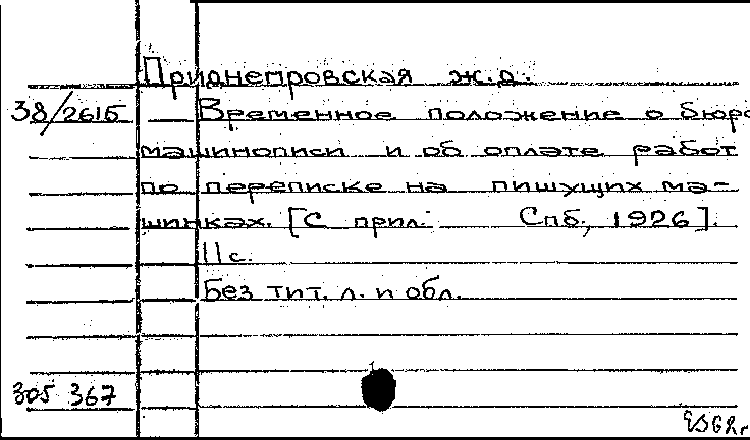 Приднепровская ж.д.
38/2615 Временное положение о бюро
машинописи и об оплате работ
по переписке на пишущих ма-
шинках. [С прил. Спб, 1926].
11 с.
Без тит. л. и обл.
305 367